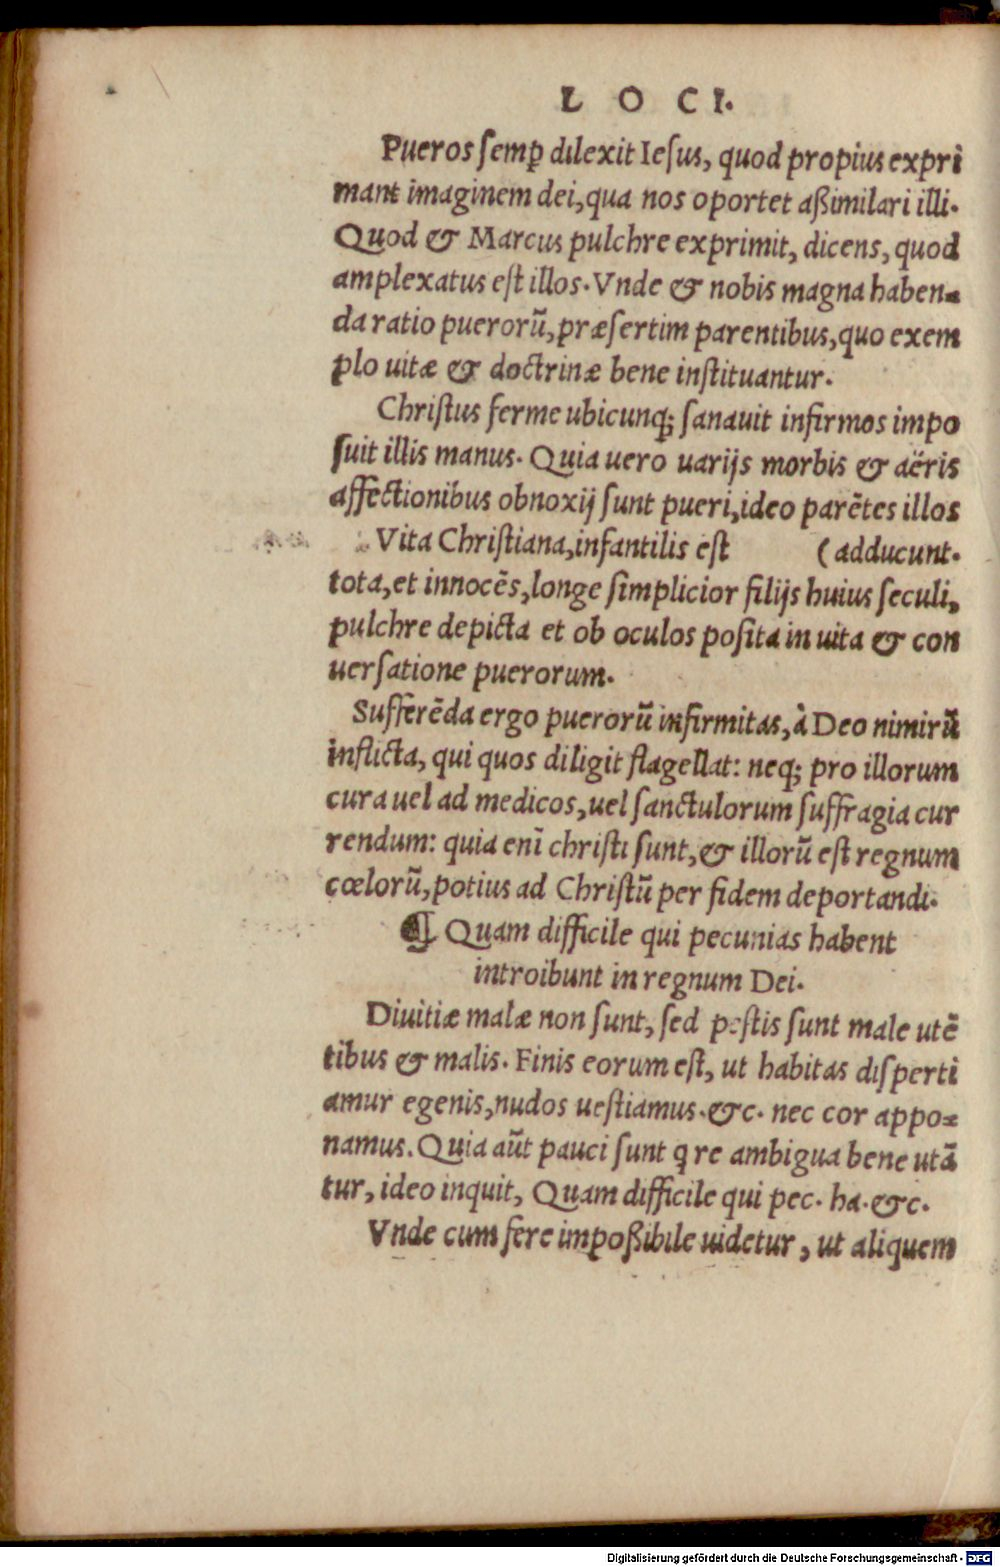 L O C I.
Pueros ſemꝑ dilexit Ieſus, quod propius expri
mant imaginem dei, qua nos oportet aßimilari illi.
Quod & Marcus pulchre exprimit, dicens, quod
amplexatus eſt illos. Vnde & nobis magna haben-
da ratio puerorũ, præſertim parentibus, quo exem
plo uitæ & doctrinæ bene inſtituantur.
Chriſtus ferme ubicunq; ſanauit infirmos impo
ſuit illis manus. Quia uero uarijs morbis & aëris
affectionibus obnoxij ſunt pueri, ideo parẽtes illos
Vita Chriſtiana, infantilis eſt (adducunt.
tota, et innocẽs, longe ſimplicior filijs huius ſeculi,
pulchre depicta et ob oculos poſita in uita & con
uerſatione puerorum.
Sufferẽda ergo puerorũ infirmitas, à Deo nimirũ
inflicta, qui quos diligit flagellat: neq; pro illorum
cura uel ad medicos, uel ſanctulorum ſuffragia cur
rendum: quia enĩ chriſti ſunt, & illorũ eſt regnum
cœlorũ, potius ad Chriſtũ per fidem deportandi.
¶ Quam difficile qui pecunias habent
introibunt in regnum Dei.
Diuitiæ malæ non ſunt, ſed peſtis ſunt male utẽ
tibus & malis. Finis eorum eſt, ut habitas diſperti
amur egenis, nudos ueſtiamus. &c. nec cor appo-
namus. Quia aũt pauci ſunt q re ambigua bene utã
tur, ideo inquit, Quam difficile qui pec. ha. &c.
Vnde cum fere impoßibile uidetur, ut aliquem
Digitalisierung gefördert durch die Deutsche Forschungsgemeinschaft - DFG